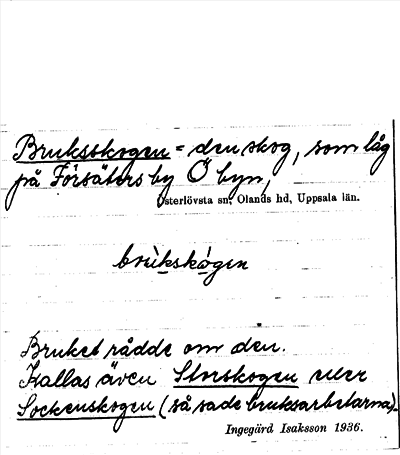 Bruksskogen = den skog, som låg
på Försäters by Ö byn,
Österlövsta sn, Olands hd, Uppsala län.
brùkskógen
Bruket rådde om den.
Kallas även Storskogen eller
Sockenskogen (så sade bruksarbetarna).
Ingegärd Isaksson 1936.